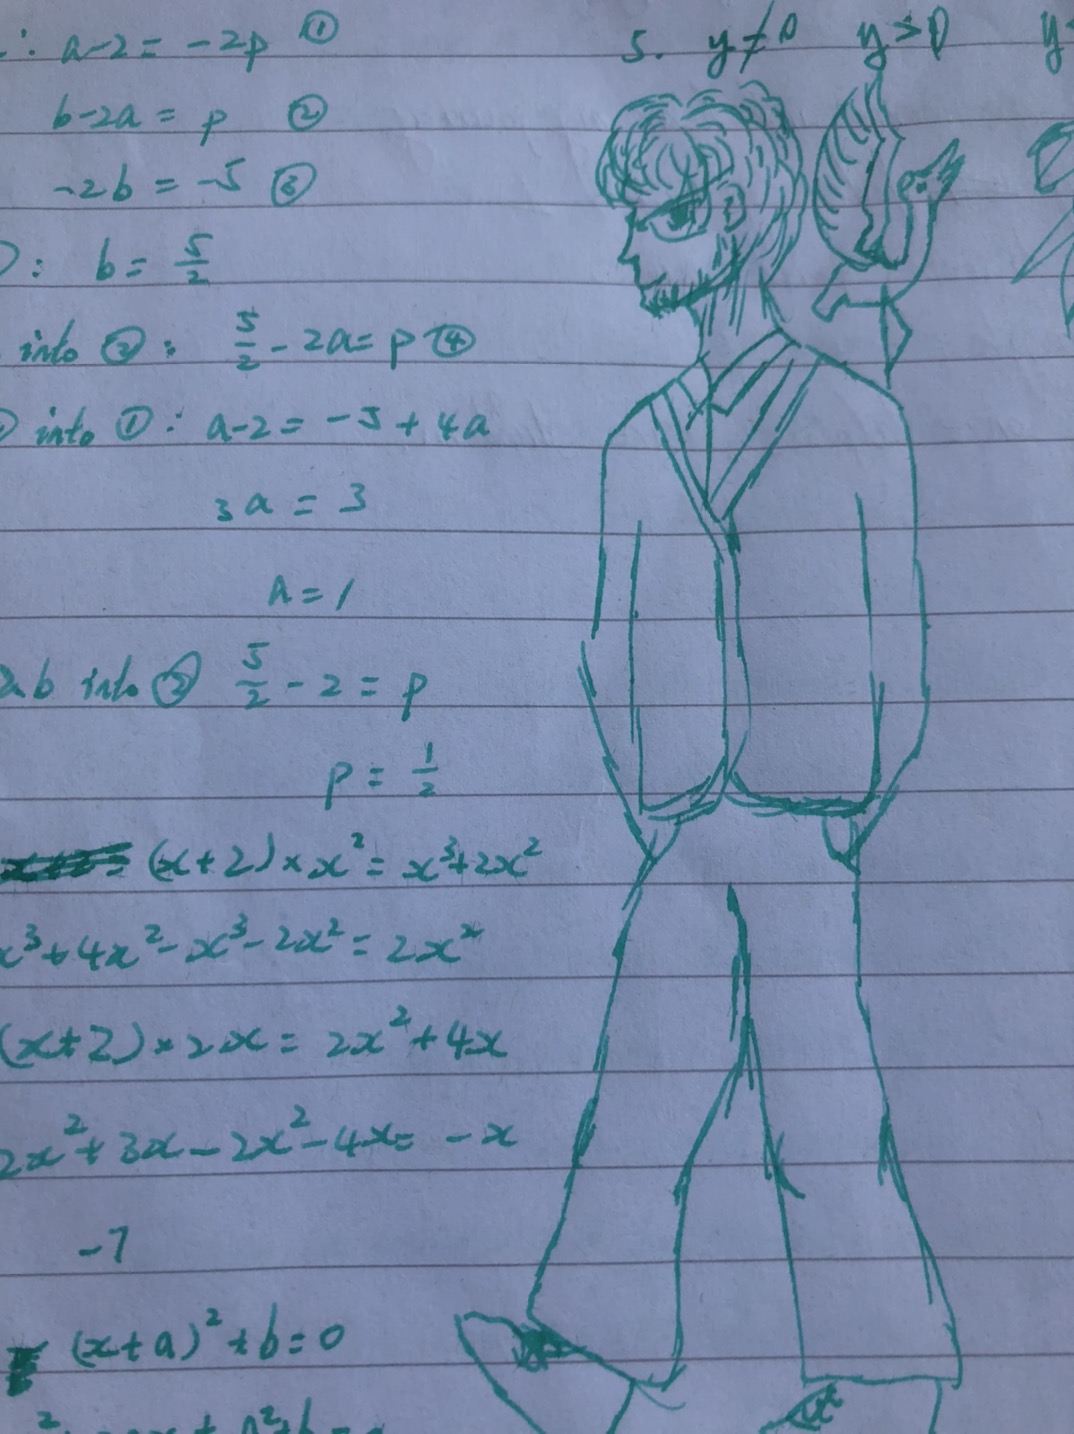 ∴ a-2 = -2p ①
5. y≠0 y>0 y<
b-2a = p ②
-2b = -5 ③
: b = 5/2
into ②: 5/2 - 2a = p ④
into ①: a-2 = -5 + 4a
3a = 3
a = 1
ab into ② 5/2 - 2 = p
p = 1/2
(x+2)×x² = x³+2x²
x³+4x²-x³-2x² = 2x²
(x+2)×2x = 2x²+4x
2x²+3x-2x²-4x = -x
-7
(x+a)²+b=0